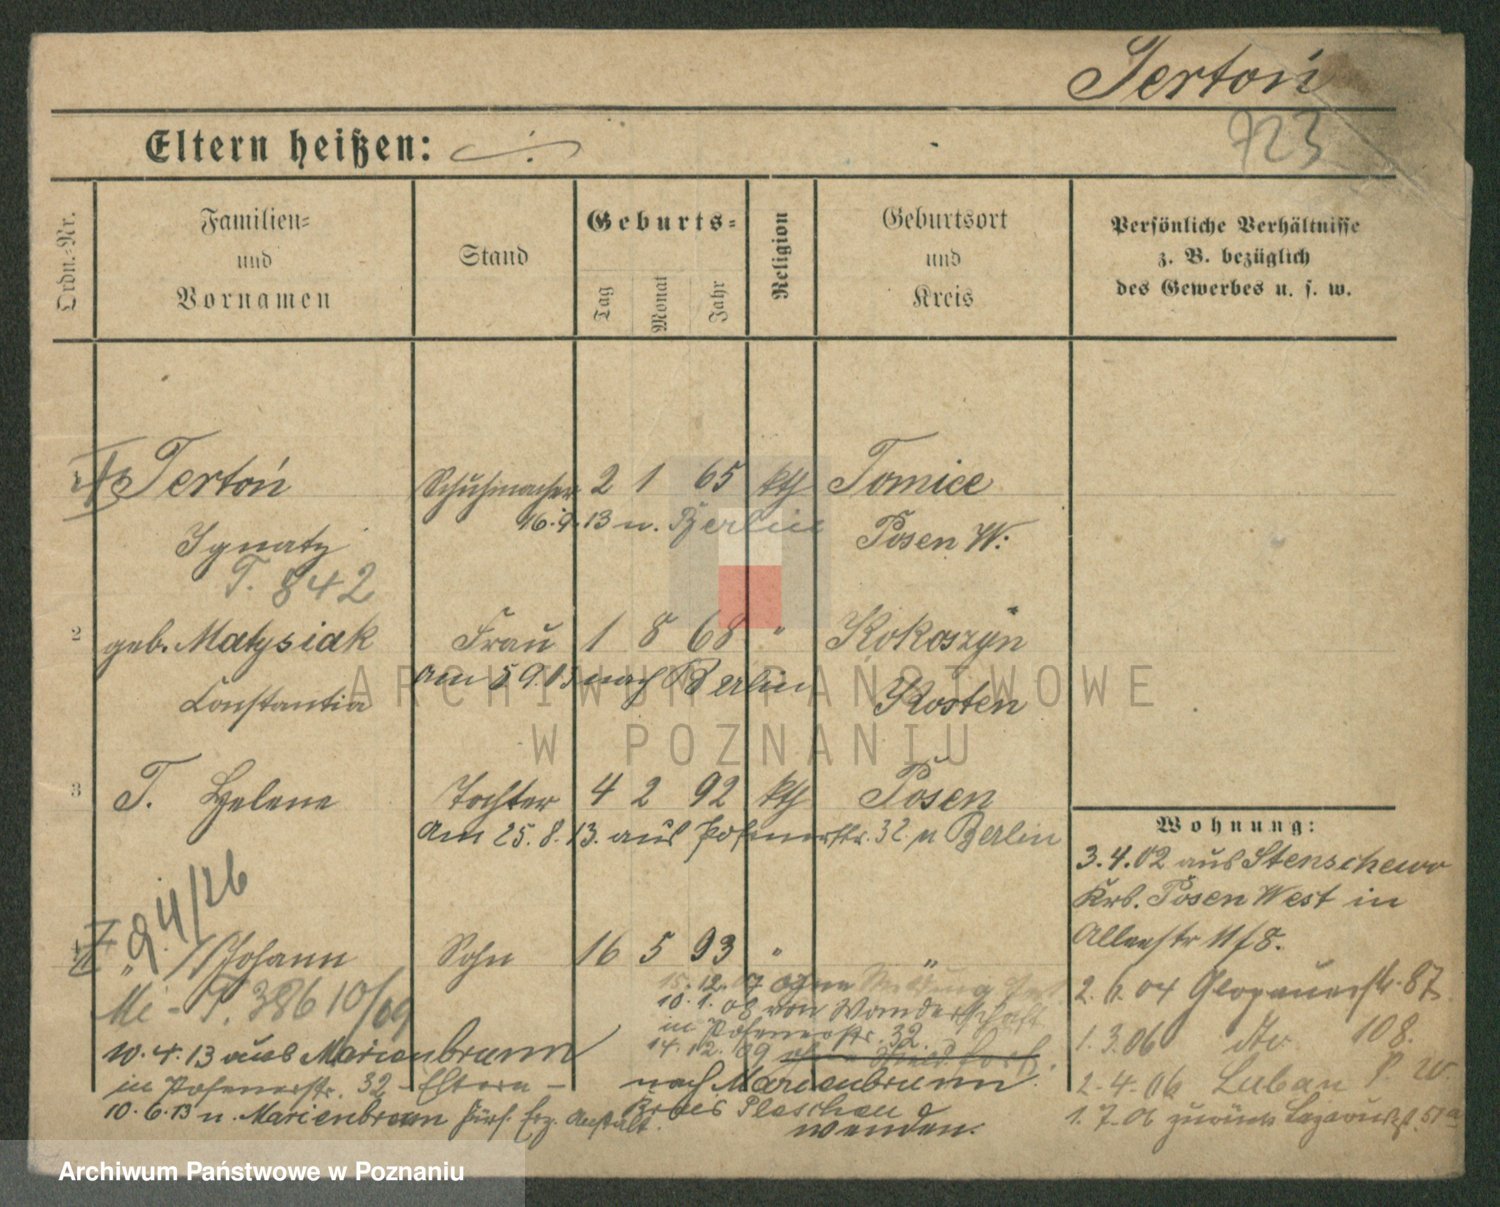 Tertoń
723
Eltern heißen: ./.
Ordn.-Nr.
Familien-
und
Vornamen
Stand
Geburts-
Tag
Monat
Jahr
Religion
Geburtsort
und
Kreis
Persönliche Verhältnisse
z. B. bezüglich
des Gewerbes u. s. w.
1 Tertoń Schuhmacher 2 1 65 kth Tomice
16.9.13 n. Berlin
Ignatz Posen W.
T. 842
2 geb. Matysiak Frau 1 8 68 " Kokoszyn
Am 5 9. 13 nach Berlin
Constantia Kosten
3 T. Helene Tochter 4 2 92 kth Posen
Am 25. 8. 13. aus Posenerstr. 32 n Berlin
24/26
4 " Johann Sohn 16 5 93 " "
Me - T. 386 10/09
15. 12. 07 ohne
10. 1. 08 von Wanderschaft
in Posenerstr. 32.
14. 12. 09
nach Marienbrunn
Kreis Pleschen
wenden.
10. 4. 13 aus Marienbrunn
in Posenerstr. 32 - Eltern -
10. 6. 13 n. Marienbrunn Fürs. Erz. Anstalt.
Wohnung:
3. 4. 02 aus Stenschewo
Krs. Posen West in
Alleestr 11/8.
2. 6. 04 Glogauerstr. 87
1. 3. 06 dto. 108.
2. 4. 06 Luban P. W
1. 7. 06 zurück 51a
ARCHIWUM PAŃSTWOWE
W POZNANIU
Archiwum Państwowe w Poznaniu